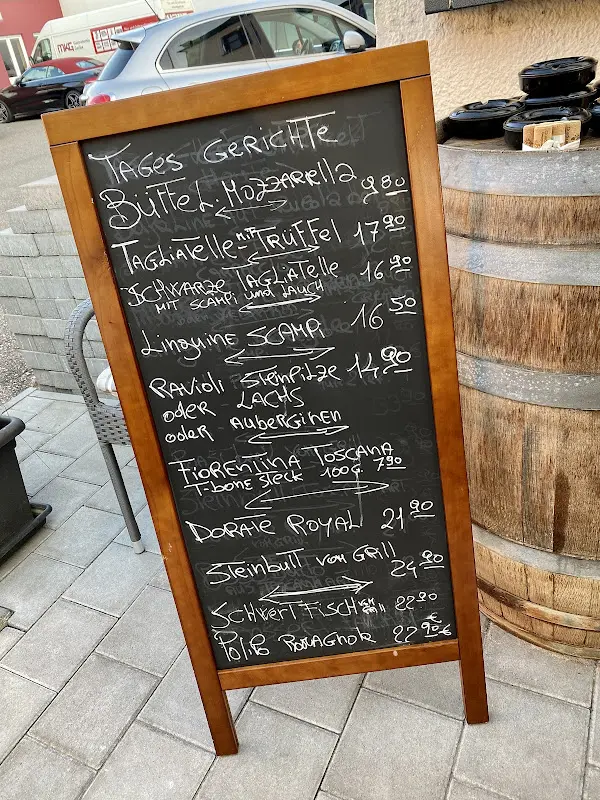 TAGES GERICHTE
BÜFFEL. MOZZARELLA 9 80
TAGLIATELLE MIT TRÜFFEL 17 90
SCHWARZE TAGLIATELLE 16 90
MIT SCAMPI und LAUCH
LINGUINE SCAMPI 16 50
RAVIOLI STEINPILZE 14 90
ODER LACHS
ODER AUBERGINEN
FIORENTINA TOSCANA
T-BONE STECK 100G. 7 90
DORATE ROYAL 21 90
STEINBUTT VOM GRILL 24 90
SCHWERTFISCH VOM GRILL 22 90
POLIPO ROMAGNOLA 22 90 €
MKG